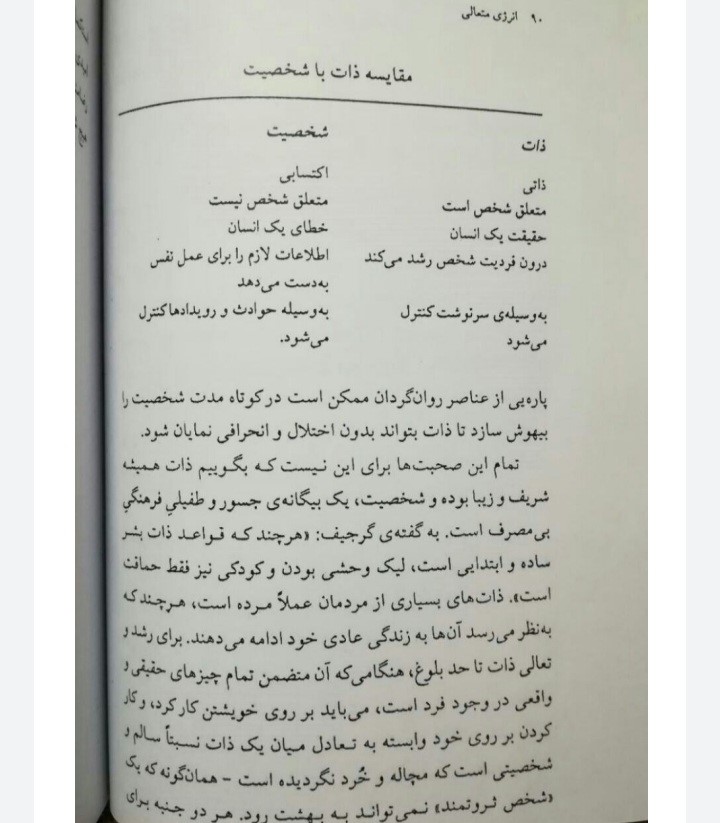 ۹۰ انرژی متعالی
مقایسه ذات با شخصیت
ذات
شخصیت
ذاتی
اکتسابی
متعلق شخص است
متعلق شخص نیست
حقیقت یک انسان
خطای یک انسان
درون فردیت شخص رشد می‌کند
اطلاعات لازم را برای عمل نفس
به‌دست می‌دهد
به‌وسیله‌ی سرنوشت کنترل
به‌وسیله حوادث و رویدادها کنترل
می‌شود
می‌شود.
پاره‌یی از عناصر روان‌گردان ممکن است در کوتاه مدت شخصیت را
بیهوش سازد تا ذات بتواند بدون اختلال و انحرافی نمایان شود.
تمام این صحبت‌ها برای این نیست که بگوییم ذات همیشه
شریف و زیبا بوده و شخصیت، یک بیگانه‌ی جسور و طفیلیِ فرهنگیِ
بی‌مصرف است. به گفته‌ی گرجیف: «هرچند که قواعد ذات بشر
ساده و ابتدایی است، لیک وحشی بودن و کودکی نیز فقط حماقت
است». ذات‌های بسیاری از مردمان عملاً مرده است، هرچند که
به‌نظر می‌رسد آن‌ها به زندگی عادی خود ادامه می‌دهند. برای رشد و
تعالی ذات تا حد بلوغ، هنگامی‌که آن متضمن تمام چیزهای حقیقی و
واقعی در وجود فرد است، می‌باید بر روی خویشتن کار کرد، و کار
کردن بر روی خود وابسته به تعادل میان یک ذات نسبتاً سالم و
شخصیتی است که مچاله و خُرد نگردیده است – همان‌گونه که یک
«شخص ثروتمند» نمی‌تواند به بهشت رود. هر دو جنبه برای